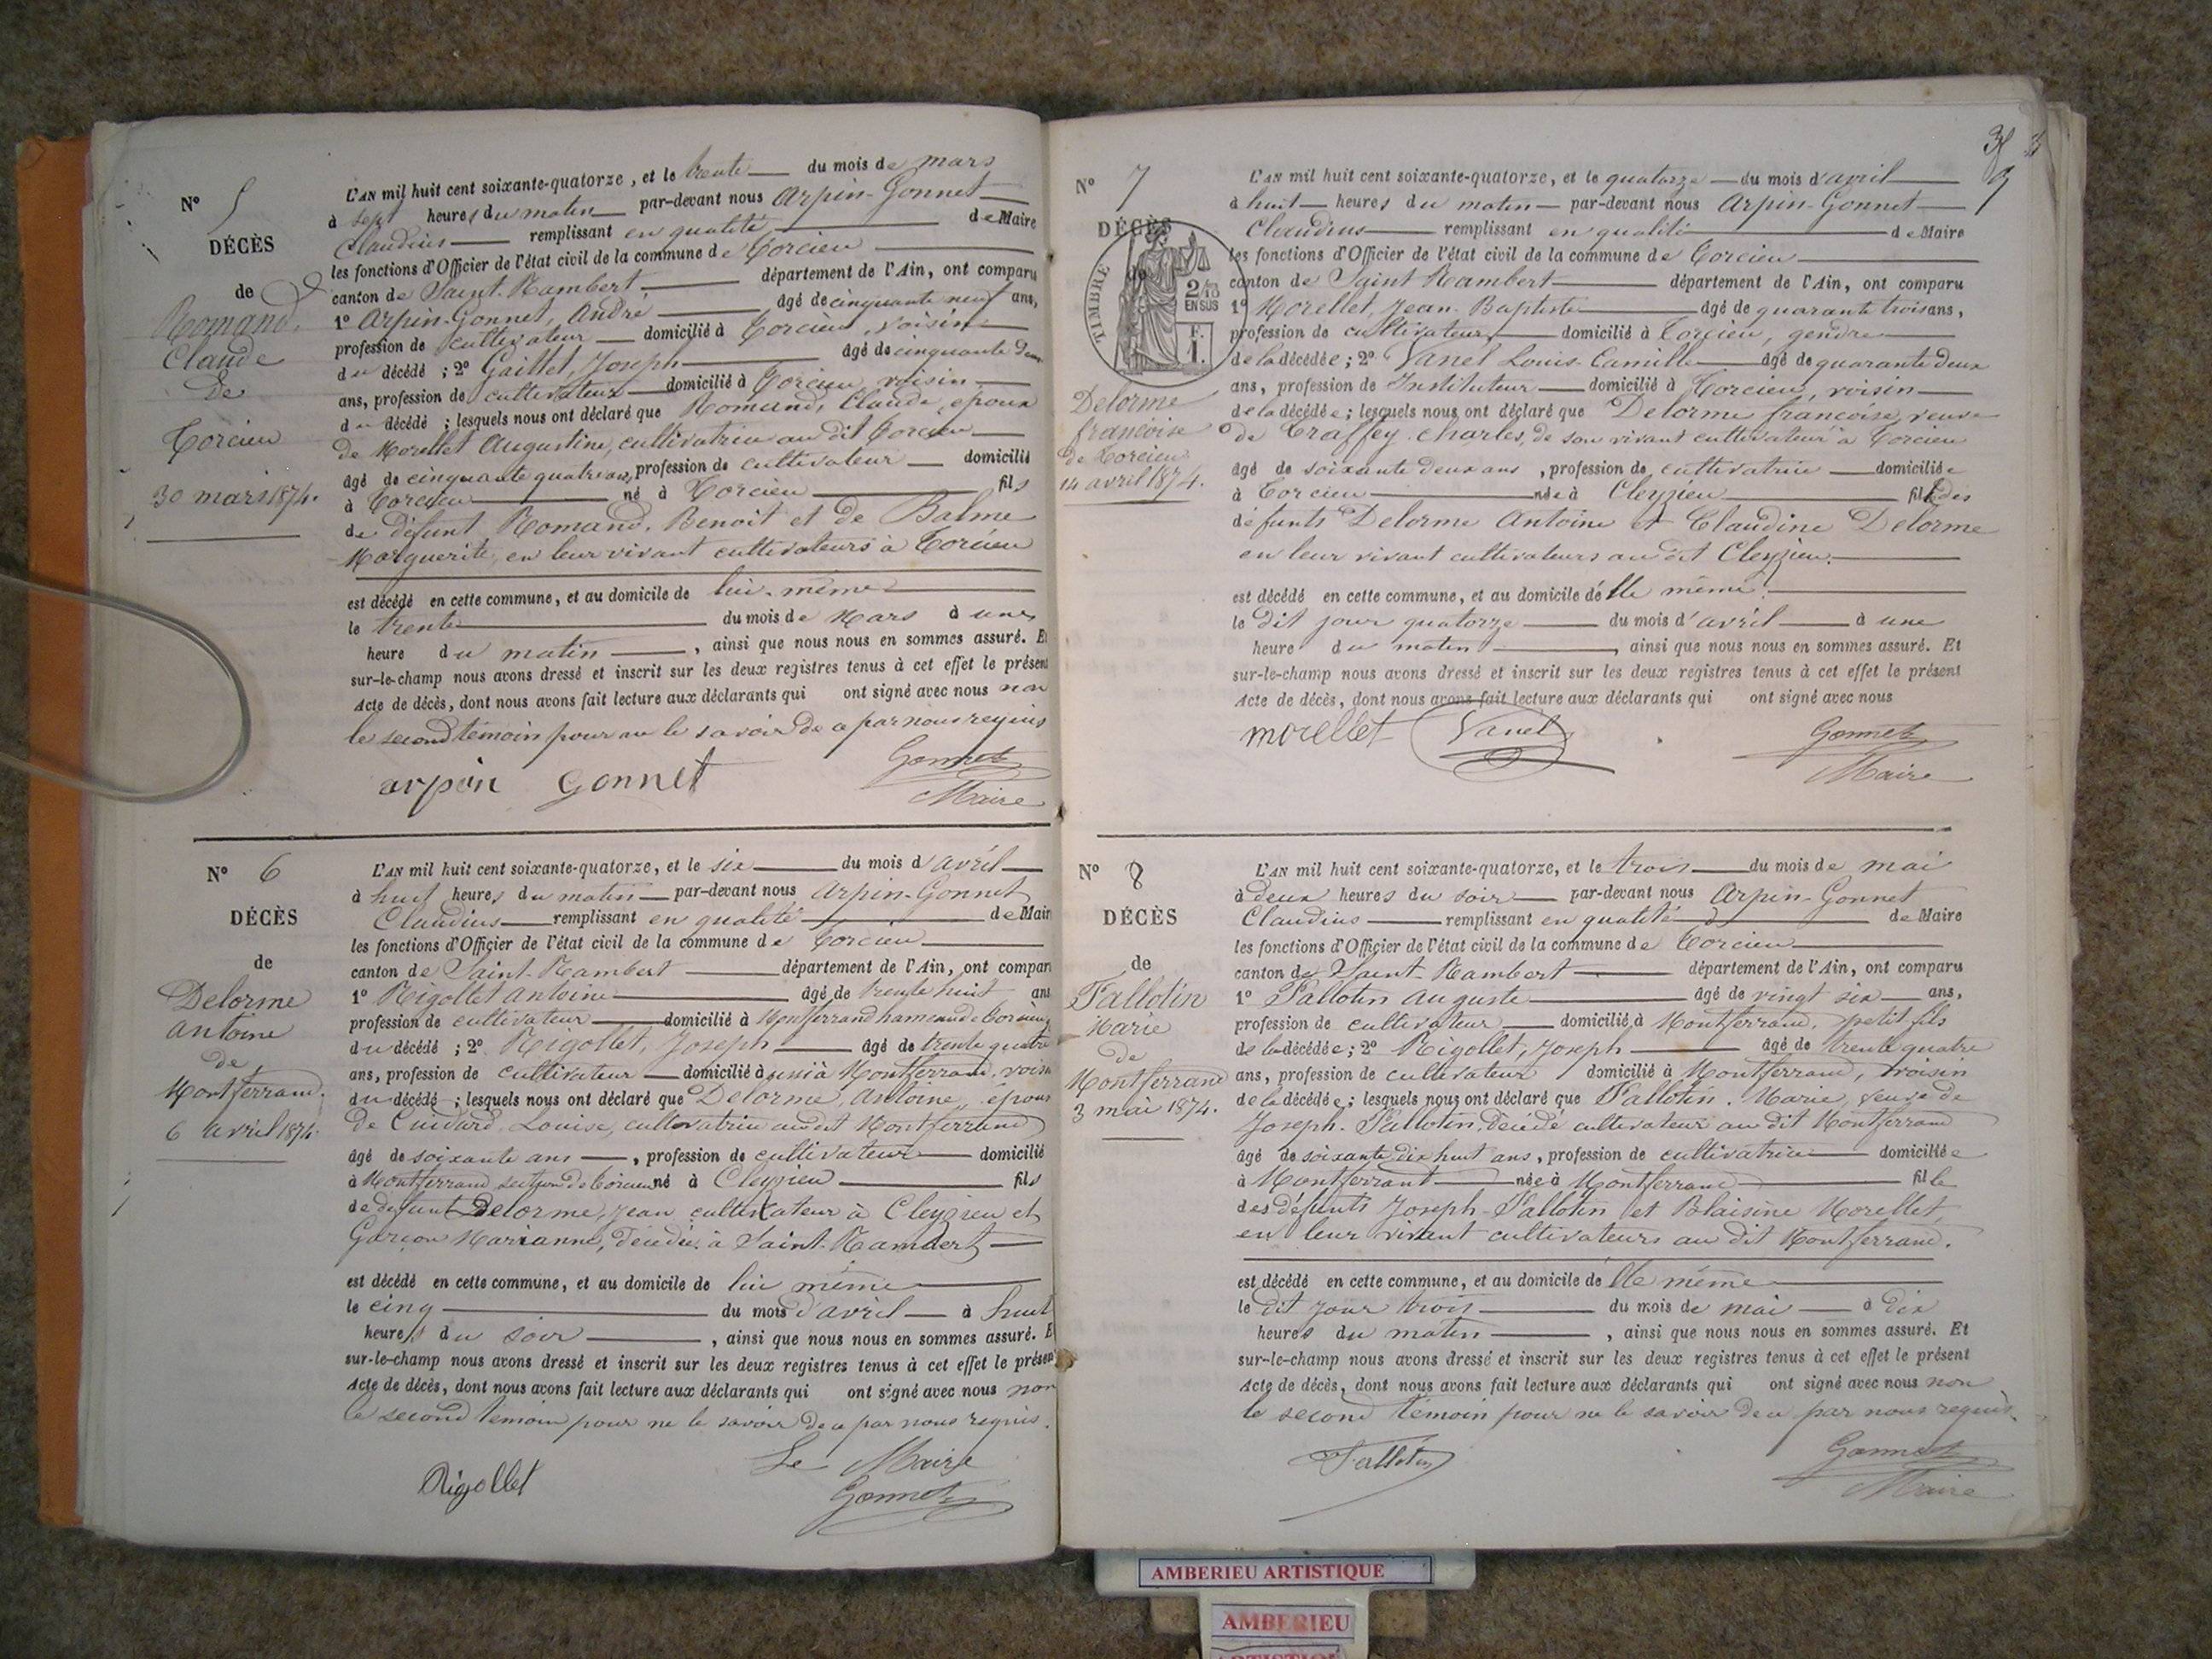 N° 5
DÉCÈS
de
Romand
Claude
de
Torcieu
30 mars 1874.
L'AN mil huit cent soixante-quatorze, et le trente du mois de mars
à sept heures du matin par-devant nous Arpin-Gonnet
Claudius remplissant en qualité de Maire
les fonctions d'Officier de l'état civil de la commune de Torcieu
canton de Saint-Rambert département de l'Ain, ont comparu
1° Arpin-Gonnet, André âgé de cinquante neuf ans,
profession de cultivateur domicilié à Torcieu, voisin
du décédé ; 2° Gaillet, Joseph âgé de cinquante deux
ans, profession de cultivateur domicilié à Torcieu, voisin
du décédé ; lesquels nous ont déclaré que Romand, Claude, époux
de Morellet Augustine, cultivatrice au dit Torcieu
âgé de cinquante quatre ans, profession de cultivateur domicilié
à Torcieu né à Torcieu fils
de défunt Romand, Benoit et de Balme
Marguerite, en leur vivant cultivateurs à Torcieu
est décédé en cette commune, et au domicile de lui-même
le trente du mois de Mars à une
heure du matin, ainsi que nous nous en sommes assuré. Et
sur-le-champ nous avons dressé et inscrit sur les deux registres tenus à cet effet le présent
Acte de décès, dont nous avons fait lecture aux déclarants qui ont signé avec nous non
le second témoin pour ne le savoir de ce par nous requis
arpin Gonnet
Gonnet
Maire
N° 6
DÉCÈS
de
Delorme
antoine
de
Montferrand.
6 avril 1874.
L'AN mil huit cent soixante-quatorze, et le six du mois d'avril
à huit heures du matin par-devant nous Arpin-Gonnet
Claudius remplissant en qualité de Maire
les fonctions d'Officier de l'état civil de la commune de Torcieu
canton de Saint-Rambert département de l'Ain, ont comparu
1° Rigollet antoine âgé de trente huit ans
profession de cultivateur domicilié à Montferrand hameau de Torcieu
du décédé ; 2° Rigollet, Joseph âgé de trente quatre
ans, profession de cultivateur domicilié aussi à Montferrand, voisin
du décédé ; lesquels nous ont déclaré que Delorme, Antoine, époux
de Cuidard Louise, cultivatrice au dit Montferrand
âgé de soixante ans, profession de cultivateur domicilié
à Montferrand section de Torcieu né à Cleyzieu fils
de défunt Delorme, Jean cultivateur à Cleyzieu et
Garçon Marianne, décédée à Saint-Rambert
est décédé en cette commune, et au domicile de lui même
le cinq du mois d'avril à huit
heures du soir, ainsi que nous nous en sommes assuré. Et
sur-le-champ nous avons dressé et inscrit sur les deux registres tenus à cet effet le présent
Acte de décès, dont nous avons fait lecture aux déclarants qui ont signé avec nous non
le second temoin pour ne le savoir de ce par nous requis.
Rigollet
Le Maire
Gonnet
N° 7
DÉCÈS
TIMBRE
2/10
EN SUS
F.
1.
Delorme
francoise
de Torcieu
14 avril 1874.
L'AN mil huit cent soixante-quatorze, et le quatorze du mois d'avril
à huit heures du matin par-devant nous Arpin-Gonnet
Claudius remplissant en qualité de Maire
les fonctions d'Officier de l'état civil de la commune de Torcieu
canton de Saint Rambert département de l'Ain, ont comparu
1° Morellet, Jean-Baptiste âgé de quarante trois ans,
profession de cultivateur domicilié à Torcieu, gendre
de la décédée ; 2° Vanel Louis-Camille âgé de quarante deux
ans, profession de Instituteur domicilié à Torcieu, voisin
de la décédée ; lesquels nous ont déclaré que Delorme francoise, veuve
de Traffey charles, de son vivant cultivateur à Torcieu
âgé de soixante deux ans, profession de cultivatrice domiciliée
à Torcieu née à Cleyzieu fille des
défunts Delorme Antoine et Claudine Delorme
en leur vivant cultivateurs au dit Cleyzieu.
est décédé en cette commune, et au domicile d'elle même
le dit jour quatorze du mois d'avril à une
heure du matin, ainsi que nous nous en sommes assuré. Et
sur-le-champ nous avons dressé et inscrit sur les deux registres tenus à cet effet le présent
Acte de décès, dont nous avons fait lecture aux déclarants qui ont signé avec nous
morellet Vanel
Gonnet
Maire
N° 8
DÉCÈS
de
Tallotin
Marie
de
Montferrand
3 mai 1874.
L'AN mil huit cent soixante-quatorze, et le trois du mois de mai
à deux heures du soir par-devant nous Arpin-Gonnet
Claudius remplissant en qualité de Maire
les fonctions d'Officier de l'état civil de la commune de Torcieu
canton de Saint-Rambert département de l'Ain, ont comparu
1° Tallotin auguste âgé de vingt six ans,
profession de cultivateur domicilié à Montferrand, petit fils
de la décédée ; 2° Rigollet, Joseph âgé de trente quatre
ans, profession de cultivateur domicilié à Montferrand, voisin
de la décédée ; lesquels nous ont déclaré que Tallotin, Marie, veuve de
Joseph-Tallotin, décédé cultivateur au dit Montferrand
âgé de soixante dix huit ans, profession de cultivatrice domiciliée
à Montferrant née à Montferrand fille
des défunts Joseph-Tallotin et Blaisine Morellet,
en leur vivant cultivateurs au dit Montferrand.
est décédé en cette commune, et au domicile de lle même
le dit jour trois du mois de mai à dix
heures du matin, ainsi que nous nous en sommes assuré. Et
sur-le-champ nous avons dressé et inscrit sur les deux registres tenus à cet effet le présent
Acte de décès, dont nous avons fait lecture aux déclarants qui ont signé avec nous non
le second témoin pour ne le savoir de ce par nous requis.
Tallotin
Gonnet
Maire
AMBERIEU ARTISTIQUE
AMBERIEU
ARTISTIQUE